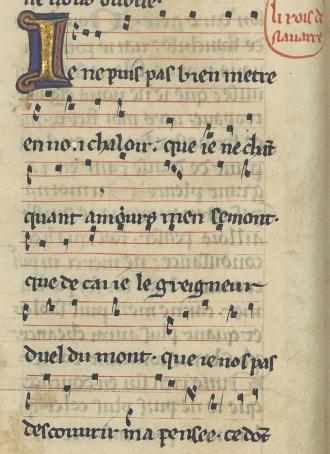 ne uous oublie.
li rois de
nauarre
Ie ne puis pas bien metre
en no.i chaloir. que ie ne chãt
quant amours men semont.
que de ca i ie le greigneur
duel du mont. que ie nos pas
descouurir ma pensee. ce dõt